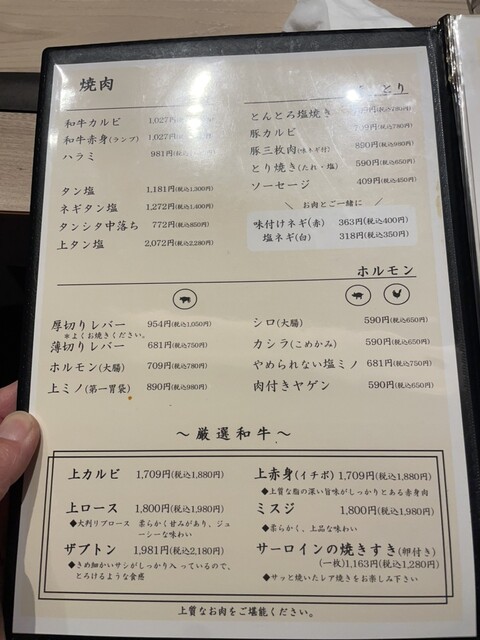 焼肉
和牛カルビ 1,027円
和牛赤身(ランプ) 1,027円
ハラミ 981円
タン塩 1,181円(税込1,300円)
ネギタン塩 1,272円(税込1,400円)
タンシタ中落ち 772円(税込850円)
上タン塩 2,072円(税込2,280円)
とり
とんとろ塩焼き
豚カルビ
豚三枚肉(味ネギ付) 890円(税込980円)
とり焼き(たれ・塩) 590円(税込650円)
ソーセージ 409円(税込450円)
＼ お肉とご一緒に ／
味付けネギ(赤) 363円(税込400円)
塩ネギ(白) 318円(税込350円)
ホルモン
厚切りレバー 954円(税込1,050円)
*よくお焼きください。
薄切りレバー 681円(税込750円)
ホルモン(大腸) 709円(税込780円)
上ミノ(第一胃袋) 890円(税込980円)
シロ(大腸) 590円(税込650円)
カシラ(こめかみ) 590円(税込650円)
やめられない塩ミノ 681円(税込750円)
肉付きヤゲン 590円(税込650円)
～厳選和牛～
上カルビ 1,709円(税込1,880円)
上ロース 1,800円(税込1,980円)
◆大判リブロース 柔らかく甘みがあり、ジュ
ーシーな味わい
ザブトン 1,981円(税込2,180円)
◆きめ細かいサシがしっかり入っているので、
とろけるような食感
上赤身(イチボ) 1,709円(税込1,880円)
◆上質な脂の深い旨味がしっかりとある赤身肉
ミスジ 1,800円(税込1,980円)
◆柔らかく、上品な味わい
サーロインの焼きすき(卵付き)
(一枚)1,163円(税込1,280円)
◆サッと焼いたレア焼きをお楽しみ下さい
上質なお肉をご堪能ください。